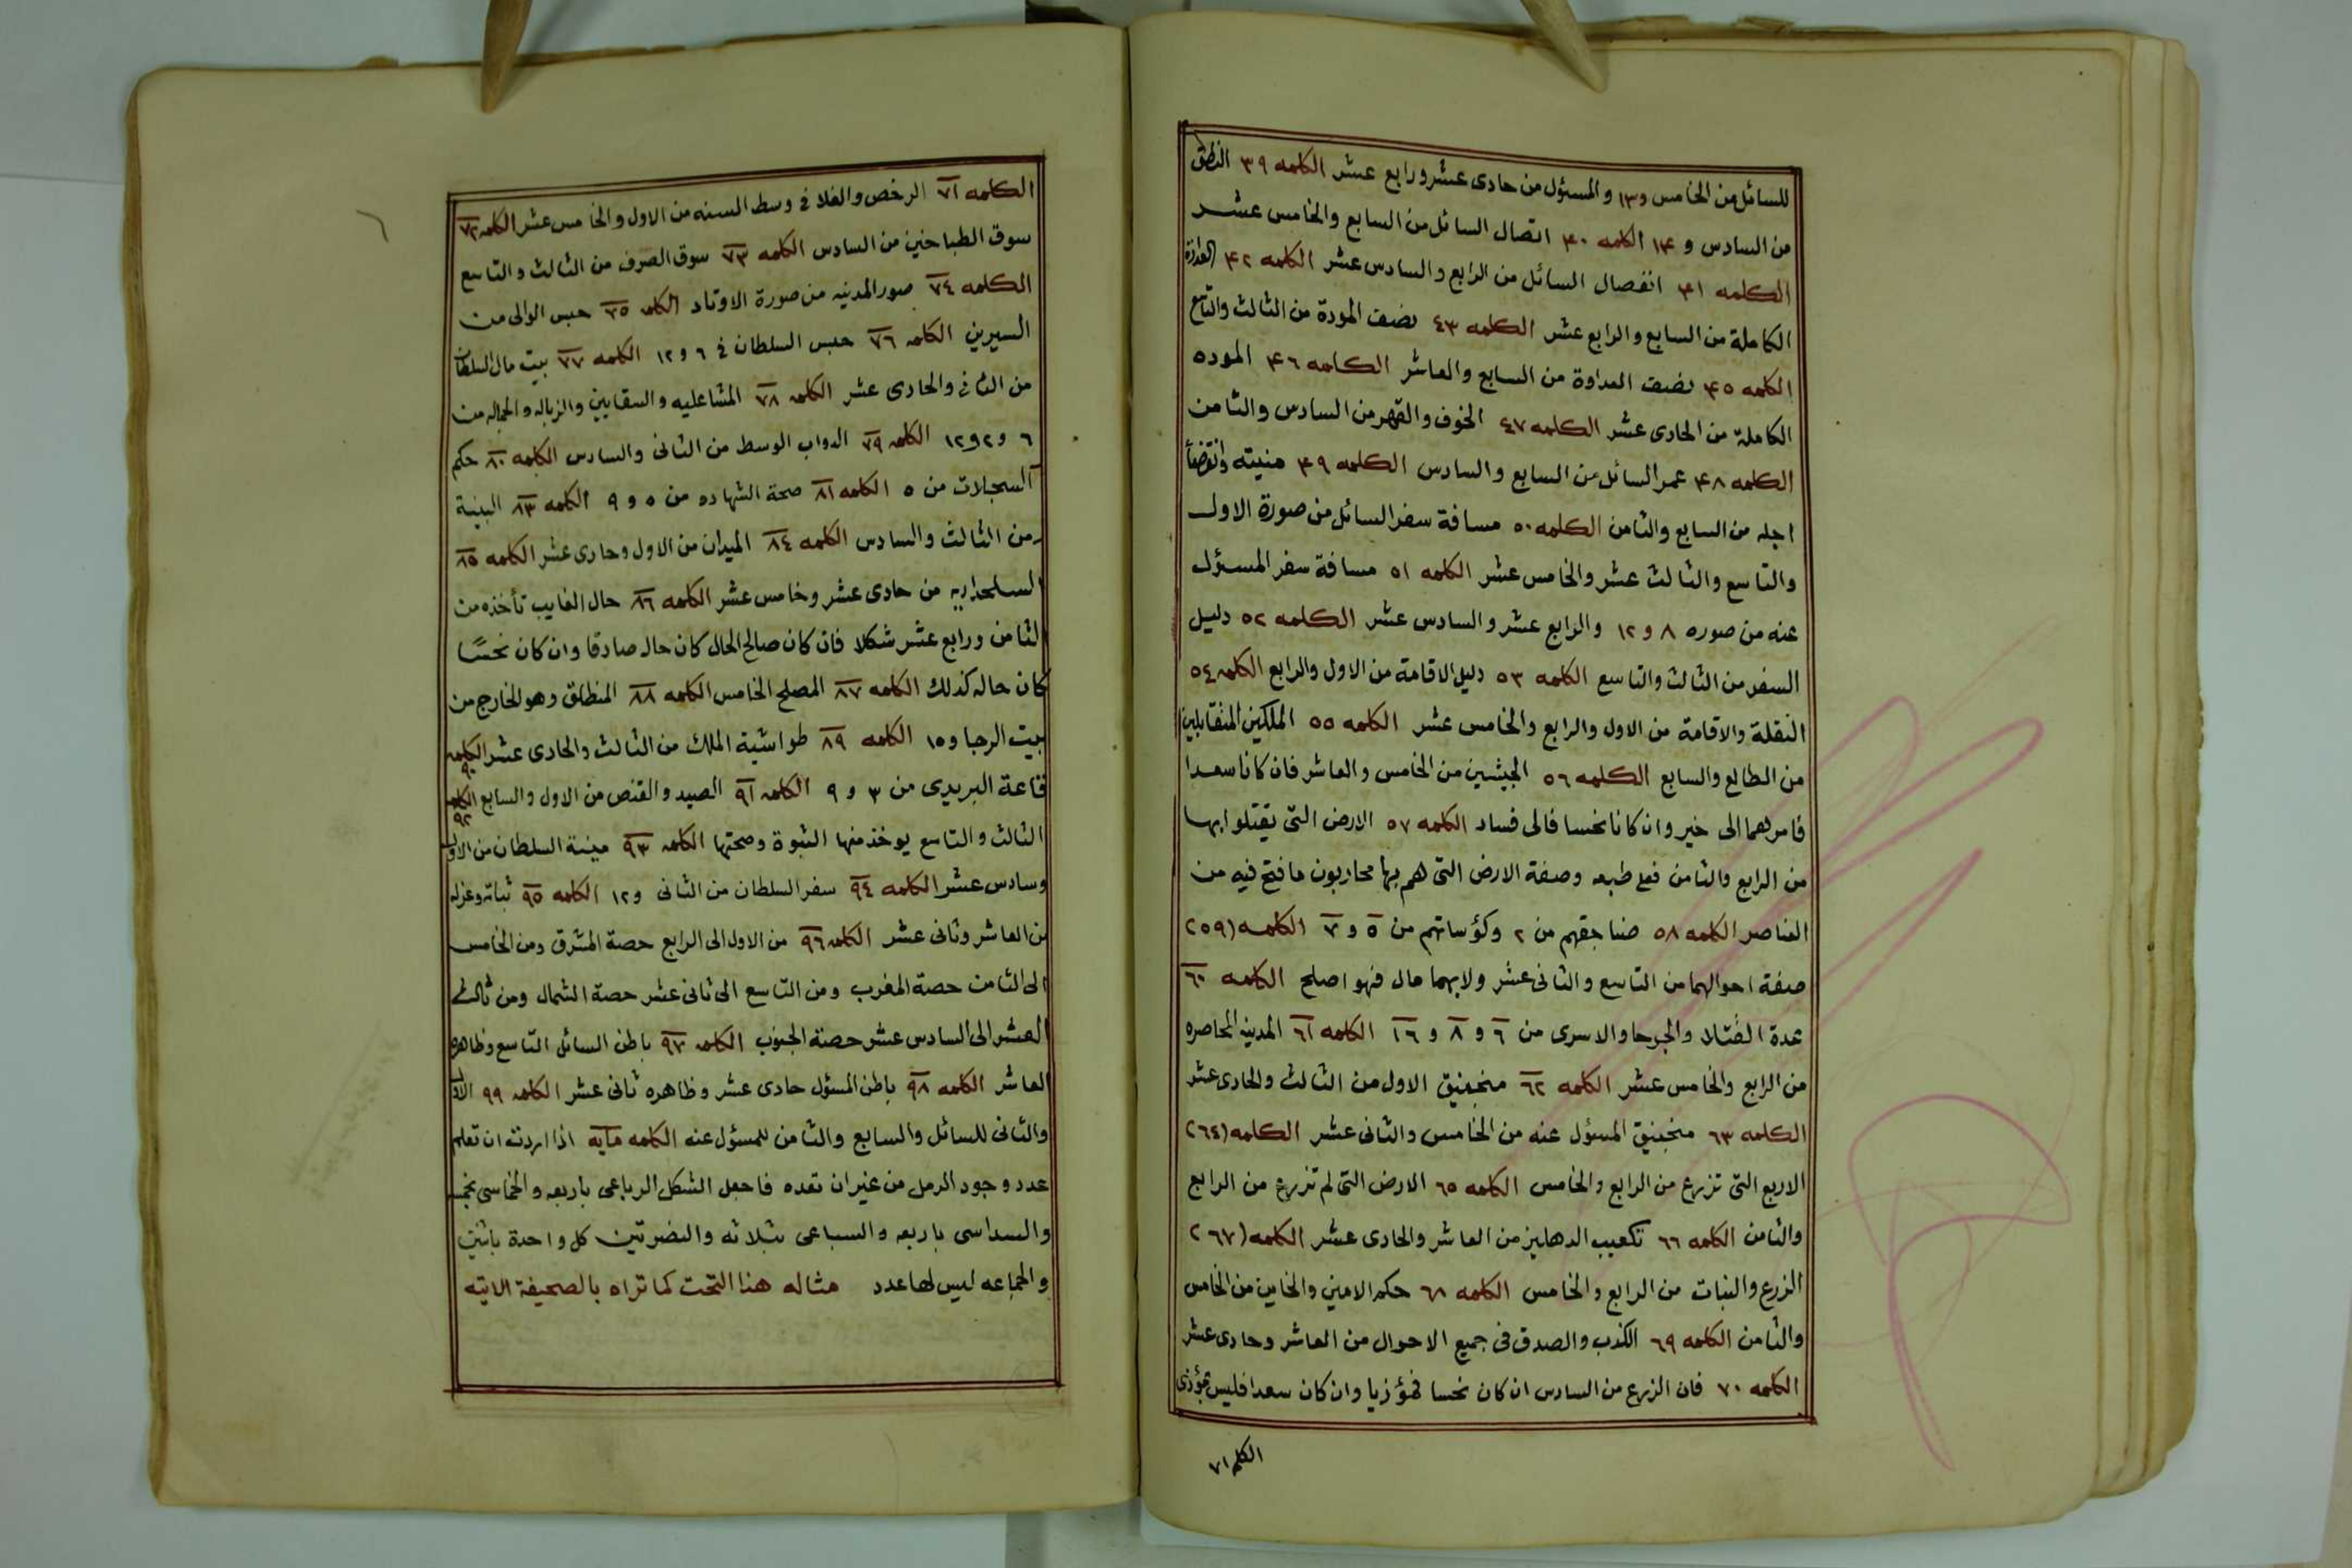 للسائل من الخامس و١٣ والمسئول من حادى عشر ورابع عشر الكلمه ٣٩ النطق
من السادس و ١٤ الكلمه ٤٠ اتصال السائل من السابع والخامس عشر
الكلمه ٤١ انفصال السائل من الرابع والسادس عشر الكلمه ٤٢ العداوة
الكاملة من السابع والرابع عشر الكلمه ٤٣ نصف المودة من الثالث والتاسع
الكلمه ٤٥ نصف العداوة من السابع والعاشر الكلمه ٤٦ الموده
الكاملة من الحادى عشر الكلمه ٤٧ الخوف والقهر من السادس والثامن
الكلمه ٤٨ عمر السائل من السابع والسادس الكلمه ٤٩ منيته وانقضا
اجله من السابع والثامن الكلمه ٥٠ مسافة سفر السائل من صورة الاول
والتاسع والثالث عشر والخامس عشر الكلمه ٥١ مسافة سفر المسئول
عنه من صوره ٨ و ١٢ والرابع عشر والسادس عشر الكلمه ٥٢ دليل
السفر من الثالث والتاسع الكلمه ٥٣ دليل الاقامة من الاول والرابع الكلمه ٥٤
النقلة والاقامة من الاول والرابع والخامس عشر الكلمه ٥٥ الملكين المتقابلين
من الطالع والسابع الكلمه ٥٦ الجيشين من الخامس والعاشر فان كانا سعدا
فامرهما الى خير وان كانا نحسا فالى فساد الكلمه ٥٧ الارض التى يقتلوا بها
من الرابع والثامن فعلى طبعه وصفة الارض التى هم بها محاربون ما فتح فيه من
العناصر الكلمه ٥٨ صناجقهم من ٢ وكؤساتهم من ٥ و ٧ الكلمه (٢٥٩
صفة احوالهما من التاسع والثانى عشر ولايهما مال فهو اصلح الكلمه ٦٠
عدة القتلا والجرحا والاسرى من ٦ و ٨ و ١٦ الكلمه ٦١ المدينه المحاصره
من الرابع والخامس عشر الكلمه ٦٢ منجنيق الاول من الثالث والحادى عشر
الكلمه ٦٣ منجنيق المسؤل عنه من الخامس والثانى عشر الكلمه (٢٦٤
الاربع التى تزرع من الرابع والخامس الكلمه ٦٥ الارض التى لم تزرع من الرابع
والثامن الكلمه ٦٦ تكعيب الدهليز من العاشر والحادى عشر الكلمه (٢٦٧
الزرع والنبات من الرابع والخامس الكلمه ٦٨ حكم الامين والخاين من الخامس
والثامن الكلمه ٦٩ الكذب والصدق فى جميع الاحوال من العاشر وحادى عشر
الكلمه ٧٠ فان الزرع من السادس ان كان نحسا فمؤزيا وان كان سعدا فليس بمؤذى
الكلمه ٧١
الكلمه ٧١ الرخص والغلا فى وسط السنه من الاول والخامس عشر الكلمه ٧٢
سوق الطباخين من السادس الكلمه ٧٣ سوق الصرف من الثالث والتاسع
الكلمه ٧٤ صور المدنيه من صورة الاوتاد الكلمه ٧٥ حبس الوالى من
السيرين الكلمه ٧٦ حبس السلطان فى ٦ و ١٢ الكلمه ٧٧ بيت مال السلطان
من الثانى والحادى عشر الكلمه ٧٨ المشاعليه والسقايين والزباله والجماله من
٦ و ٢ و ١٢ الكلمه ٧٩ الدواب الوسط من الثانى والسادس الكلمه ٨٠ حكم
السجلات من ٥ الكلمه ٨١ صحة الشهاده من ٥ و ٩ الكلمه ٨٣ البينة
من الثالث والسادس الكلمه ٨٤ الميدان من الاول وحادى عشر الكلمه ٨٥
السلحداريه من حادى عشر وخامس عشر الكلمه ٨٦ حال الغايب تأخذه من
الثامن ورابع عشر شكلا فان كان صالح الحال كان حاله صادقا وان كان نحسًا
كان حاله كذلك الكلمه ٨٧ المصلح الخامس الكلمه ٨٨ المنطلق وهو الخارج من
بيت الرجا و١٥ الكلمه ٨٩ طواشية الملك من الثالث والحادى عشر الكلمه ٩٠
قاعة البريدى من ٣ و ٩ الكلمه ٩١ الصيد والقنص من الاول والسابع الكلمه ٩٢
الثالث والتاسع يوخذ منها النبوة وصحتها الكلمه ٩٣ مينة السلطان من الاول
وسادس عشر الكلمه ٩٤ سفر السلطان من الثانى و١٢ الكلمه ٩٥ ثباته وعزله
من العاشر وثانى عشر الكلمه ٩٦ من الاول الى الرابع حصة المشرق ومن الخامس
الى الثامن حصة المغرب ومن التاسع الى ثانى عشر حصة الشمال ومن ثالث
العشر الى السادس عشر حصة الجنوب الكلمه ٩٧ باطن السائل التاسع وظاهره
العاشر الكلمه ٩٨ باطن المسؤل حادى عشر وظاهره ثانى عشر الكلمه ٩٩ الاول
والثانى للسائل والسابع والثامن للمسؤل عنه الكلمه مايه اذا اردت ان تعلم
عدد وجود الرمل من غير ان تعده فاجعل الشكل الرباعى باربعه والخماسى بخمسه
والسداسى باربعه والسباعى بثلاثه والنضرتين كل واحدة باثنين
والجماعه ليس لها عدد مثاله هذا التحت كما تراه بالصحيفة الاتيه